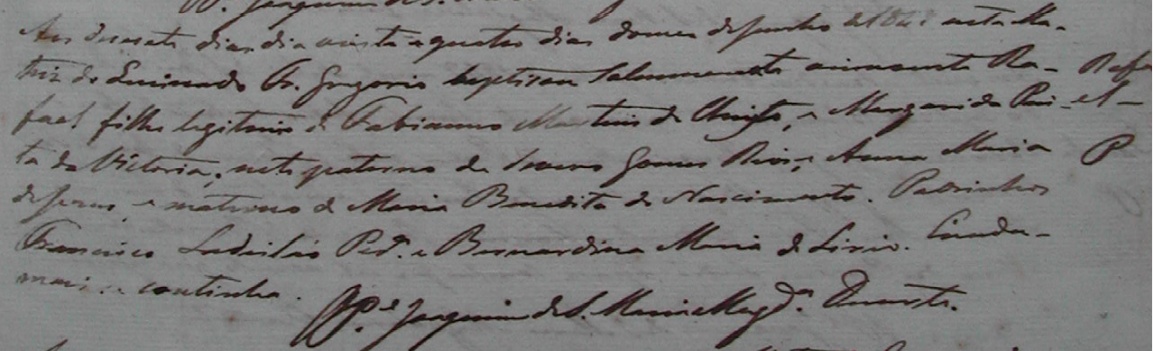 Aos dias dia vinte e quatro dias do mes de Junho de 184 nesta Ma-
triz do Fr. Gregorio baptisou Solemnemente Ra- Rafa
fael filho legitimo de Fabianno Martins de Christo, e Margarida Pin- el-
ta da Victoria, neto paterno de Gomes Rios, e Anna Maria P
de Jesus, e materno de Maria Benedita do Nascimento. Padrinhos
Francisco Ladisláo Per.ª e Bernardina Maria de Lirio. E nada
mais se continha.
O P.e Joaquim de S. Maria Magd.ª Duarte.